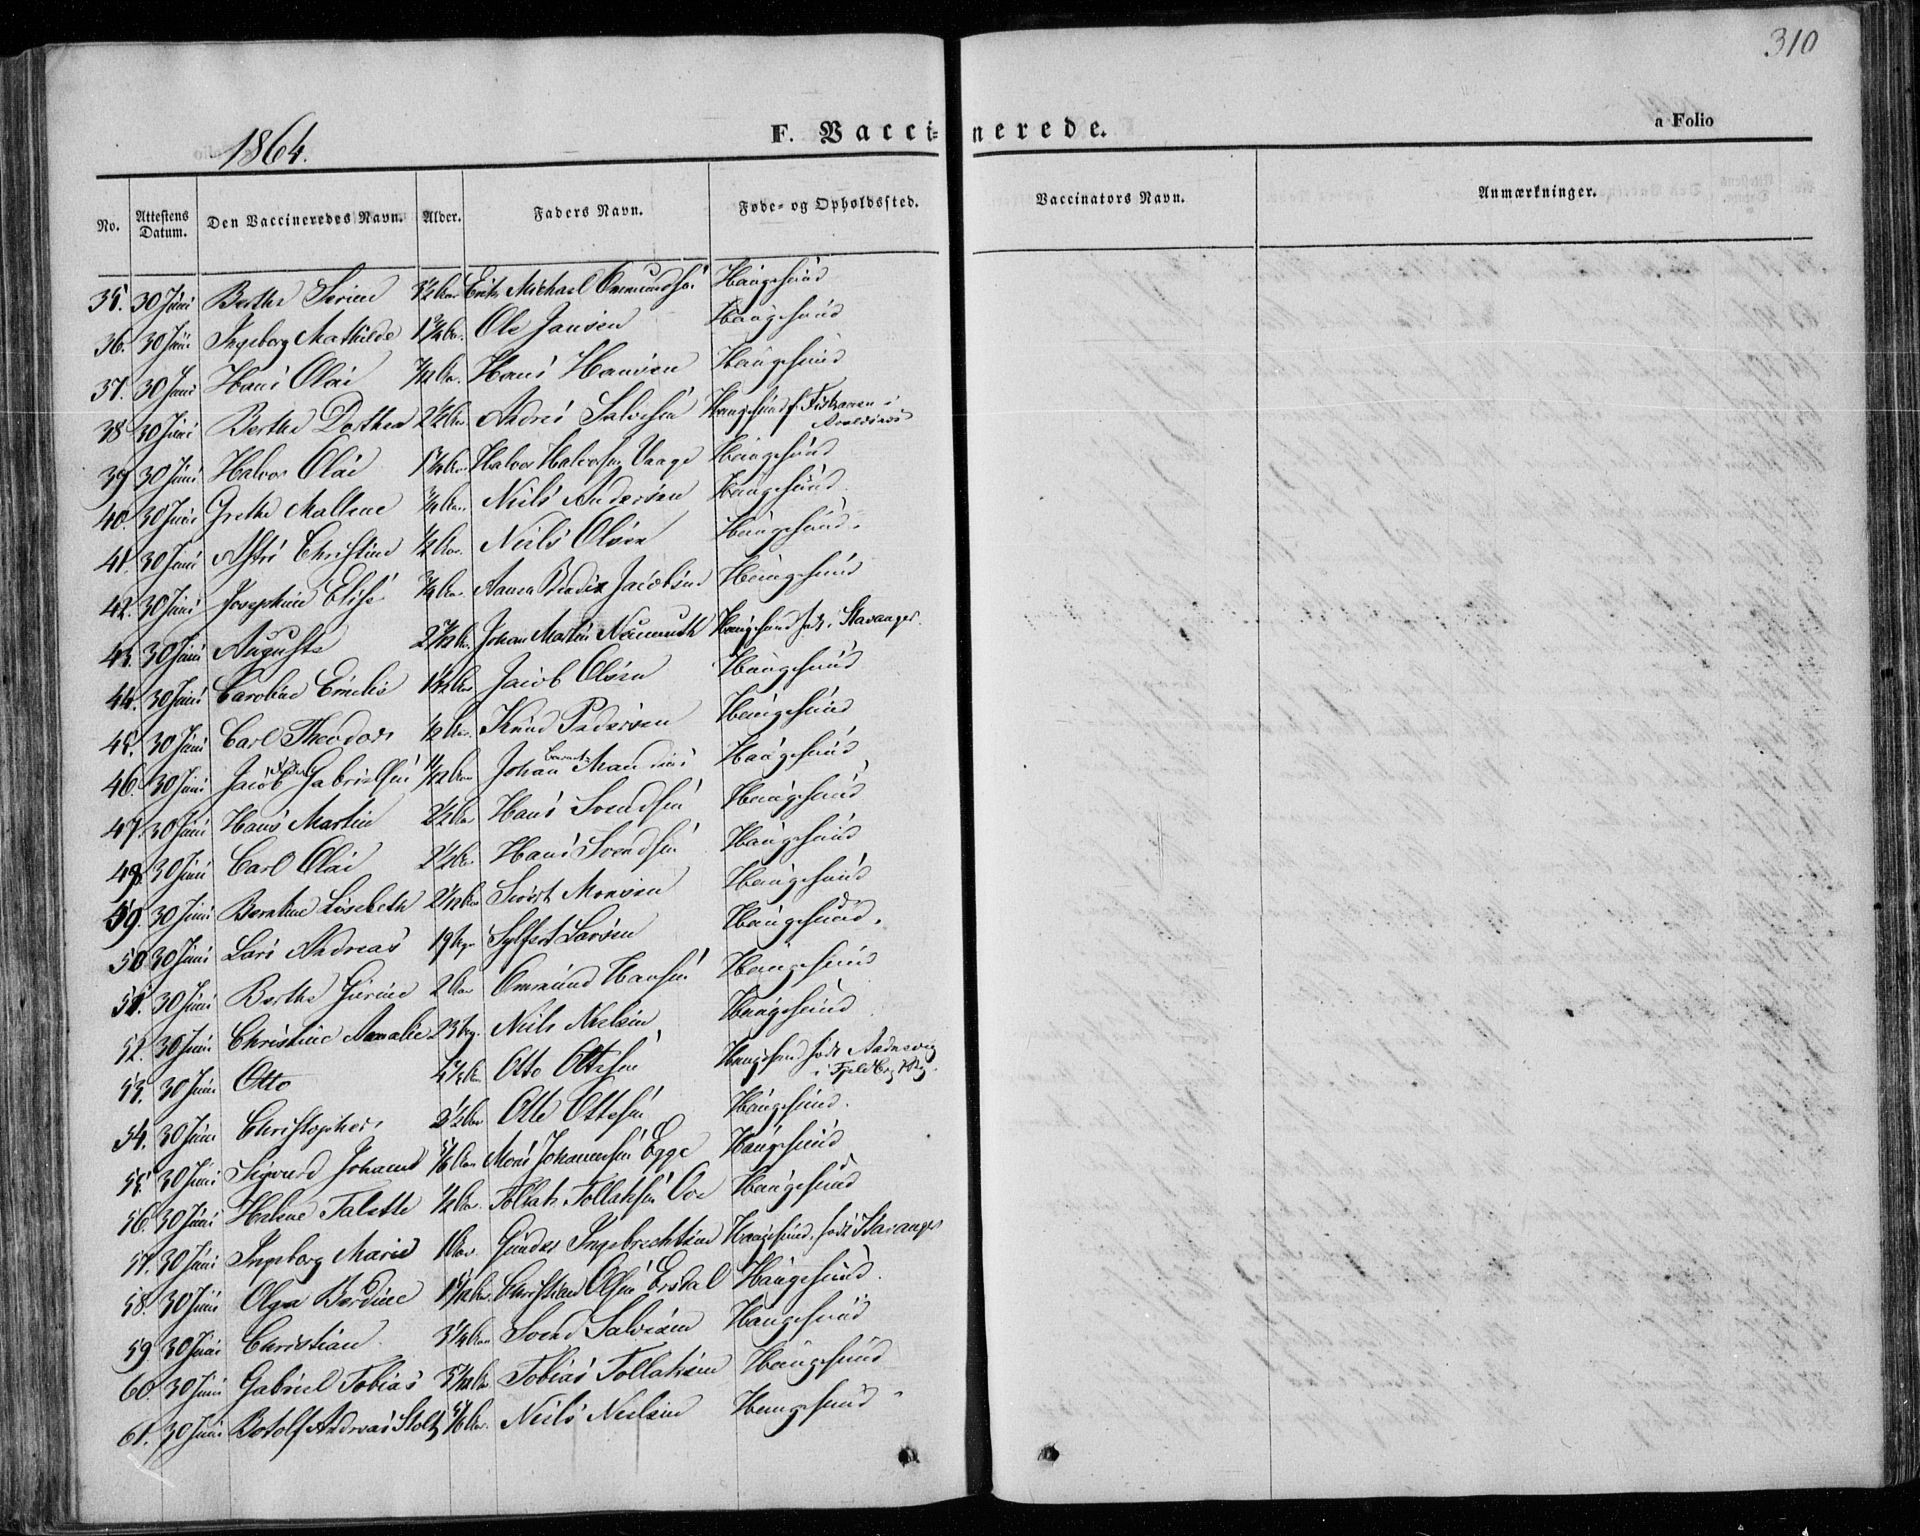 310
1864.
F. Vacci=nerede.
a Folio
No. Attestens Datum. Den Vaccineredes Navn. Alder. Faders Navn. Føde- og Opholdssted. Vaccinators Navn. Anmærkninger.
35. 30 Juni Berthe Serine Michael Ommundsen Haugesund
36. 30 Juni Ingeborg Mathilde Ole Jansen Haugesund
37. 30 Juni Hans Olai 7/12 Aar. Hans Hansen Haugesund
38 30 Juni Berthe Dorthea 2 1/2 Aar Andres Salvesen Haugesund f. i
39 30 Juni Halvor Olai Halvor Halvorsen Vaage Haugesund
40. 30 Juni Grethe Mallene Niels Andersen Haugesund.
41. 30 Juni Christine 1/2 Aar. Niels Olsen Haugesund.
42. 30 Juni Josephine Elise 3/4 Aar. Jacobsen Haugesund
43. 30 Juni Auguste Johan Martin Haugesund født i Stavanger.
44. 30 Juni Caroline Emelie Jacob Olsen Haugesund
45. 30 Juni Carl Theodor 1/2 Aar. Knud Pedersen Haugesund
46. 30 Juni Jacob Gabrielsen 11/12 Aar Johan Haugesund
47. 30 Juni Hans Martin 2 1/2 Aar Hans Svendsen Haugesund
48. 30 Juni Carl Olai 2 1/2 Aar Hans Svendsen Haugesund
59. 30 Juni Berntine Lisebeth Sivert Monsen Haugesund
50. 30 Juni Lars Andreas 19 Sylfest Larsen Haugesund.
51. 30 Juni Berthe Gurine 2 Aar Ommund Hansen Haugesund
52. 30 Juni Christine Amalie 23 Niels Nielsen Haugesund.
53. 30 Juni Otto Otto Ottesen Haugesund født
i Fjeldberg
54. 30 Juni Christopher. 2 1/2 Aar Otto Ottesen Haugesund.
55. 30 Juni Sigvard Johannes 5/6 Aar Mons Johannesen Egge Haugesund
56. 30 Juni Helene Talette 1/2 Aar. Tollak Tollaksen Haugesund
57. 30 Juni Ingeborg Marie 1 Aar. Gunder Ingebrechtsen Haugesund. født i Stavanger
58. 30 Juni Olga Berdine Christian Olsen Ersdal Haugesund.
59. 30 Juni Christian. 3 1/4 Aar Svend Salvesen Haugesund
60. 30 Juni Gabriel Tobias Tobias Tollaksen Haugesund
61. 30 Juni Botolf Andreas Stoltz 5/6 Aar. Niels Nielsen Haugesund